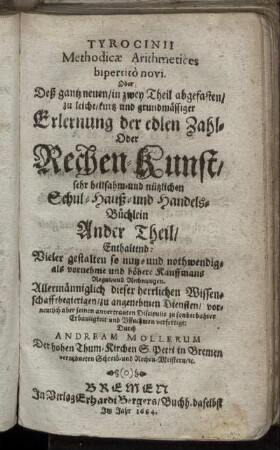 TYROCINII
Methodicæ Arithmetices
bipertitò novi.
Oder
Deß gantz neuen/in zwey Theil abgefasten/
zu leicht/kurtz und grundmässiger
Erlernung der edlen Zahl-
Oder
Rechen-Kunst/
sehr heilsahm-und nützlichen
Schul-Hauß-und Handels-
Büchlein
Ander Theil/
Enthaltend:
Vieler gestalten so nutz-und nothwendig-
als vornehme und höhere Kauffmans
Regulen und Rechnungen.
Allermänniglich dieser herrlichen Wissen-
schafft begierigen/zu angenehmen Diensten/ vor-
nemlich aber seinen anvertrauten Discipulis zu sonderbahrer
Erbauligkeit und Auffnahm verfertiget:
Durch
ANDREAM MOLLERUM
Der hohen Thum-Kirchen S. Petri in Bremen
verordneten Schreib-und Rechen-Meistern/rc.
BREMEN
In Verlag Erhardi Bergers/Buchh. daselbst
Im Jahr 1664.